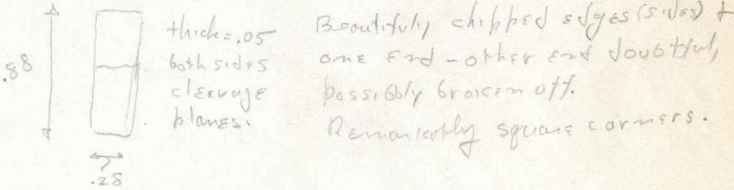 .88
thick=.05
both sides
cleavage
planes.
.28
Beautifully chipped edges (sides) &
one end - other end doubtful,
possibly broken off.
Remarkably square corners.